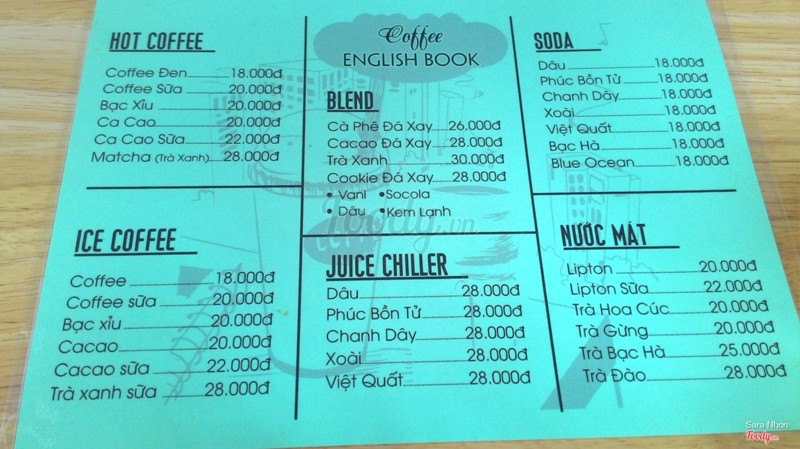 HOT COFFEE
Coffee Đen 18.000đ
Coffee Sữa 20.000đ
Bạc Xỉu 20.000đ
Ca Cao 20.000đ
Ca Cao Sữa 22.000đ
Matcha (Trà Xanh) 28.000đ
ICE COFFEE
Coffee 18.000đ
Coffee sữa 20.000đ
Bạc xỉu 20.000đ
Cacao 20.000đ
Cacao sữa 22.000đ
Trà xanh sữa 28.000đ
Coffee
ENGLISH BOOK
BLEND
Cà Phê Đá Xay 26.000đ
Cacao Đá Xay 28.000đ
Trà Xanh 30.000đ
Cookie Đá Xay 28.000đ
• Vani • Socola
• Dâu • Kem Lạnh
JUICE CHILLER
Dâu 28.000đ
Phúc Bồn Tử 28.000đ
Chanh Dây 28.000đ
Xoài 28.000đ
Việt Quất 28.000đ
SODA
Dâu 18.000đ
Phúc Bồn Tử 18.000đ
Chanh Dây 18.000đ
Xoài 18.000đ
Việt Quất 18.000đ
Bạc Hà 18.000đ
Blue Ocean 18.000đ
NƯỚC MÁT
Lipton 20.000đ
Lipton Sữa 22.000đ
Trà Hoa Cúc 20.000đ
Trà Gừng 20.000đ
Trà Bạc Hà 25.000đ
Trà Đào 28.000đ
Foody.vn
Sara Nhon
Foody.vn